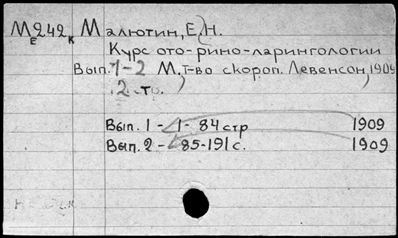 МЕ242К Малютин, Е. Н.
Курс ото-рино-ларингологии
Вып. 1-2 М., т-во скороп. Левенсон, 1909
2 т.
Вып. 1 - 1-84 стр 1909
Вып. 2 - 85-191 с. 1909